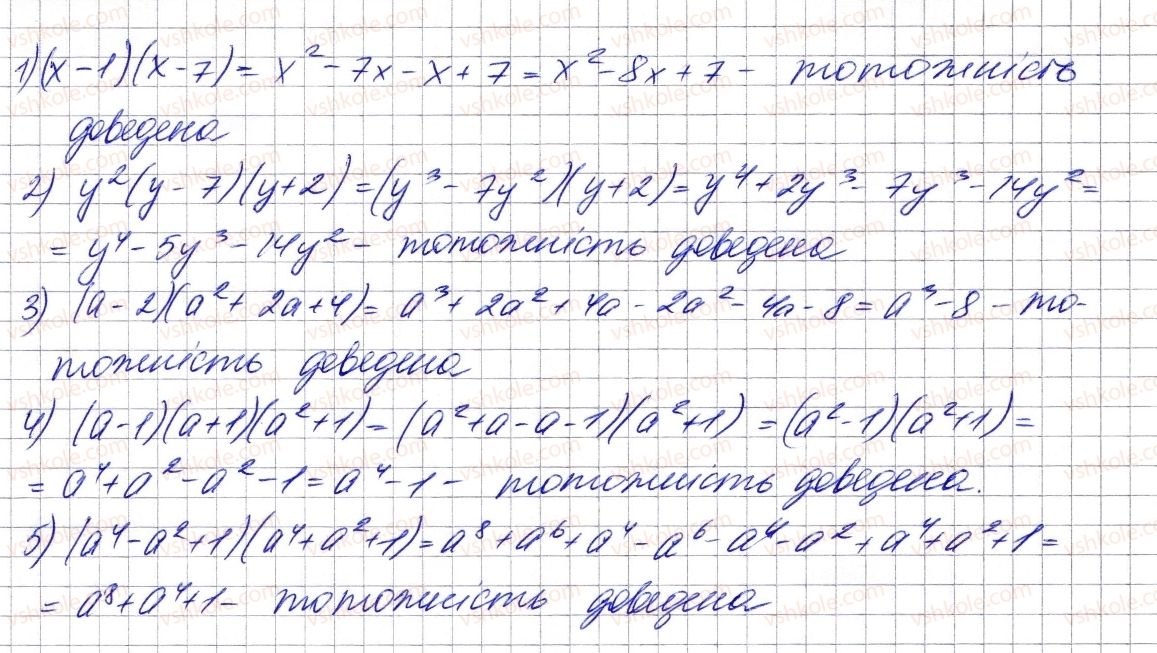 1) (x - 1)(x - 7) = x² - 7x - x + 7 = x² - 8x + 7 - тотожність
доведена
2) y²(y - 7)(y + 2) = (y³ - 7y²)(y + 2) = y⁴ + 2y³ - 7y³ - 14y² =
= y⁴ - 5y³ - 14y² - тотожність доведена
3) (a - 2)(a² + 2a + 4) = a³ + 2a² + 4a - 2a² - 4a - 8 = a³ - 8 - то-
тожність доведена
4) (a - 1)(a + 1)(a² + 1) = (a² + a - a - 1)(a² + 1) = (a² - 1)(a² + 1) =
= a⁴ + a² - a² - 1 = a⁴ - 1 - тотожність доведена.
5) (a⁴ - a² + 1)(a⁴ + a² + 1) = a⁸ + a⁶ + a⁴ - a⁶ - a⁴ - a² + a⁴ + a² + 1 =
= a⁸ + a⁴ + 1 - тотожність доведена